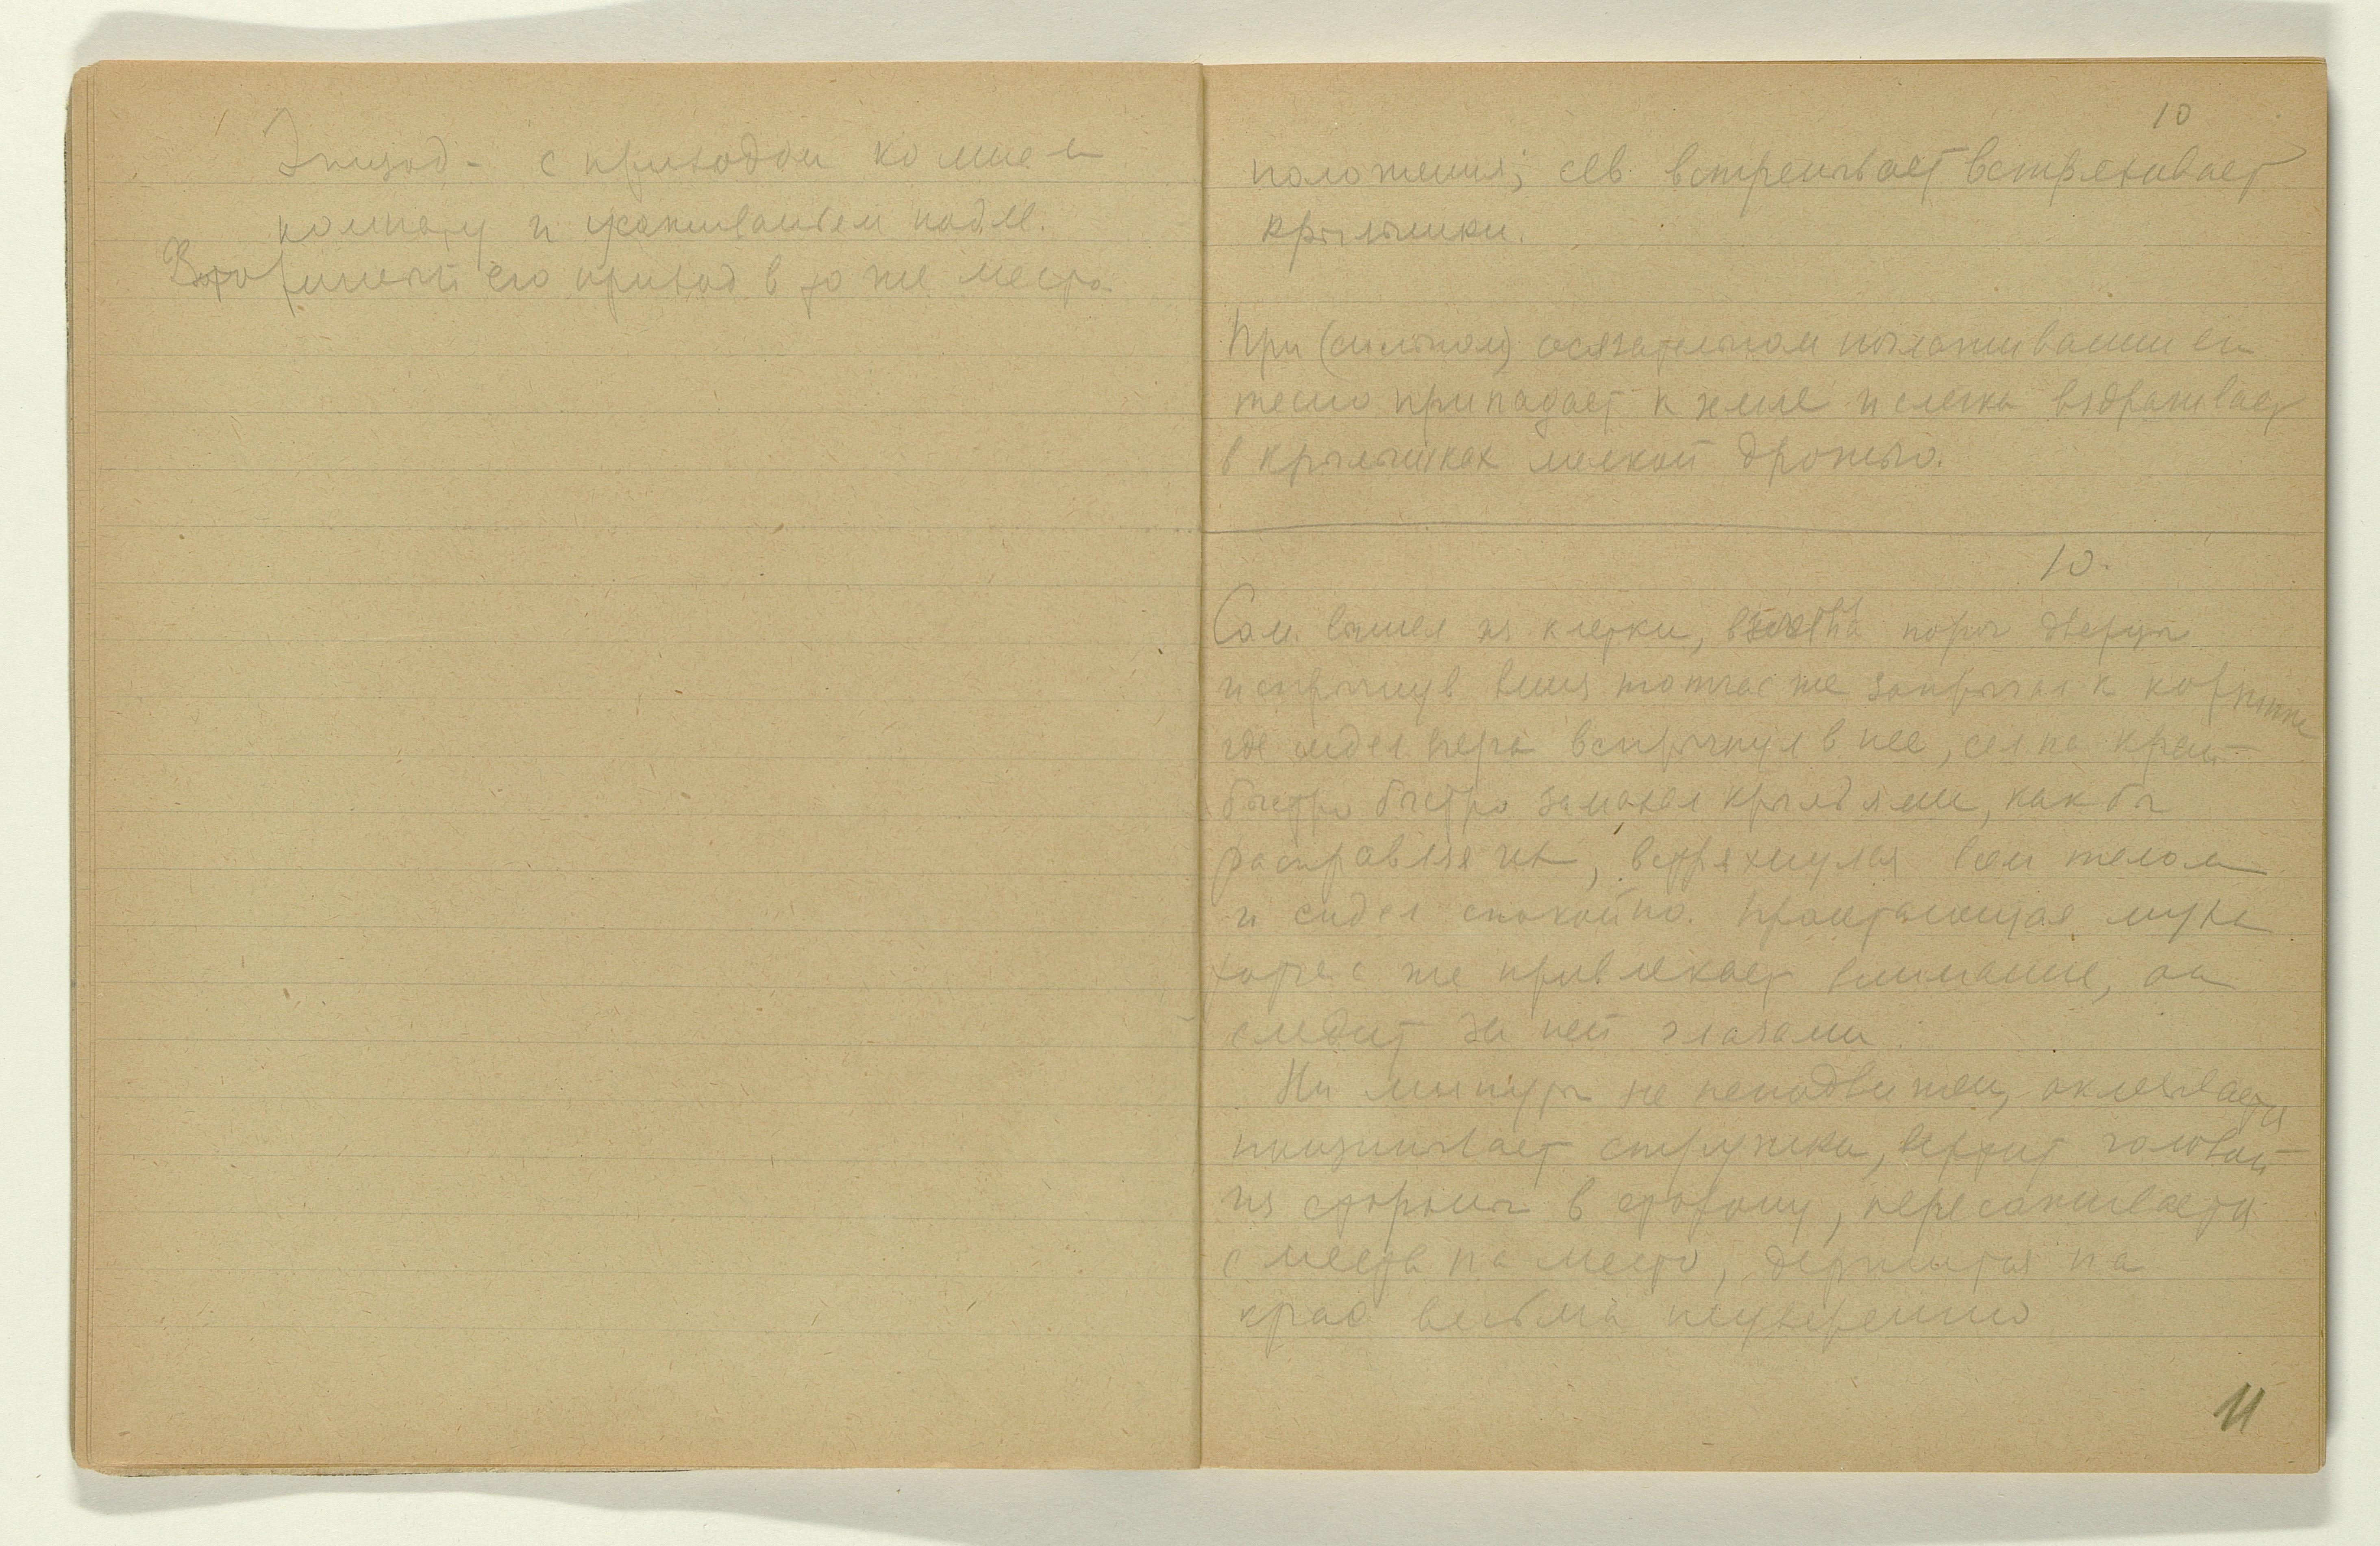 Эпизод - с приходом ко мне в
комнату и усаживанием подле.
Вторичный его приход в то же место
10
положения; сев встречивает встряхивает
крылышки.
При (сильном) осязательном поглаживании он
тесно припадает к земле и слегка вздрагивает
в крылышках мелкой дрожью.
10.
Сам вышел из клетки, на порог дверцы
и спрыгнув вниз тотчас же запрыгал к корзинке
где сидел вчера вспрыгнул в нее, сел на край
быстро быстро замахал крыльями, как бы
расправляя их, встряхнулся всем телом
и сидел спокойно. Пролетающая муха
тотчас же привлекает внимание, он
следит за ней глазами.
Ни минуты не неподвижен, оклевывается
стружки, вертит головой
из стороны в сторону, пересаживается
с места на место, держится на
краю весьма неуверенно
11